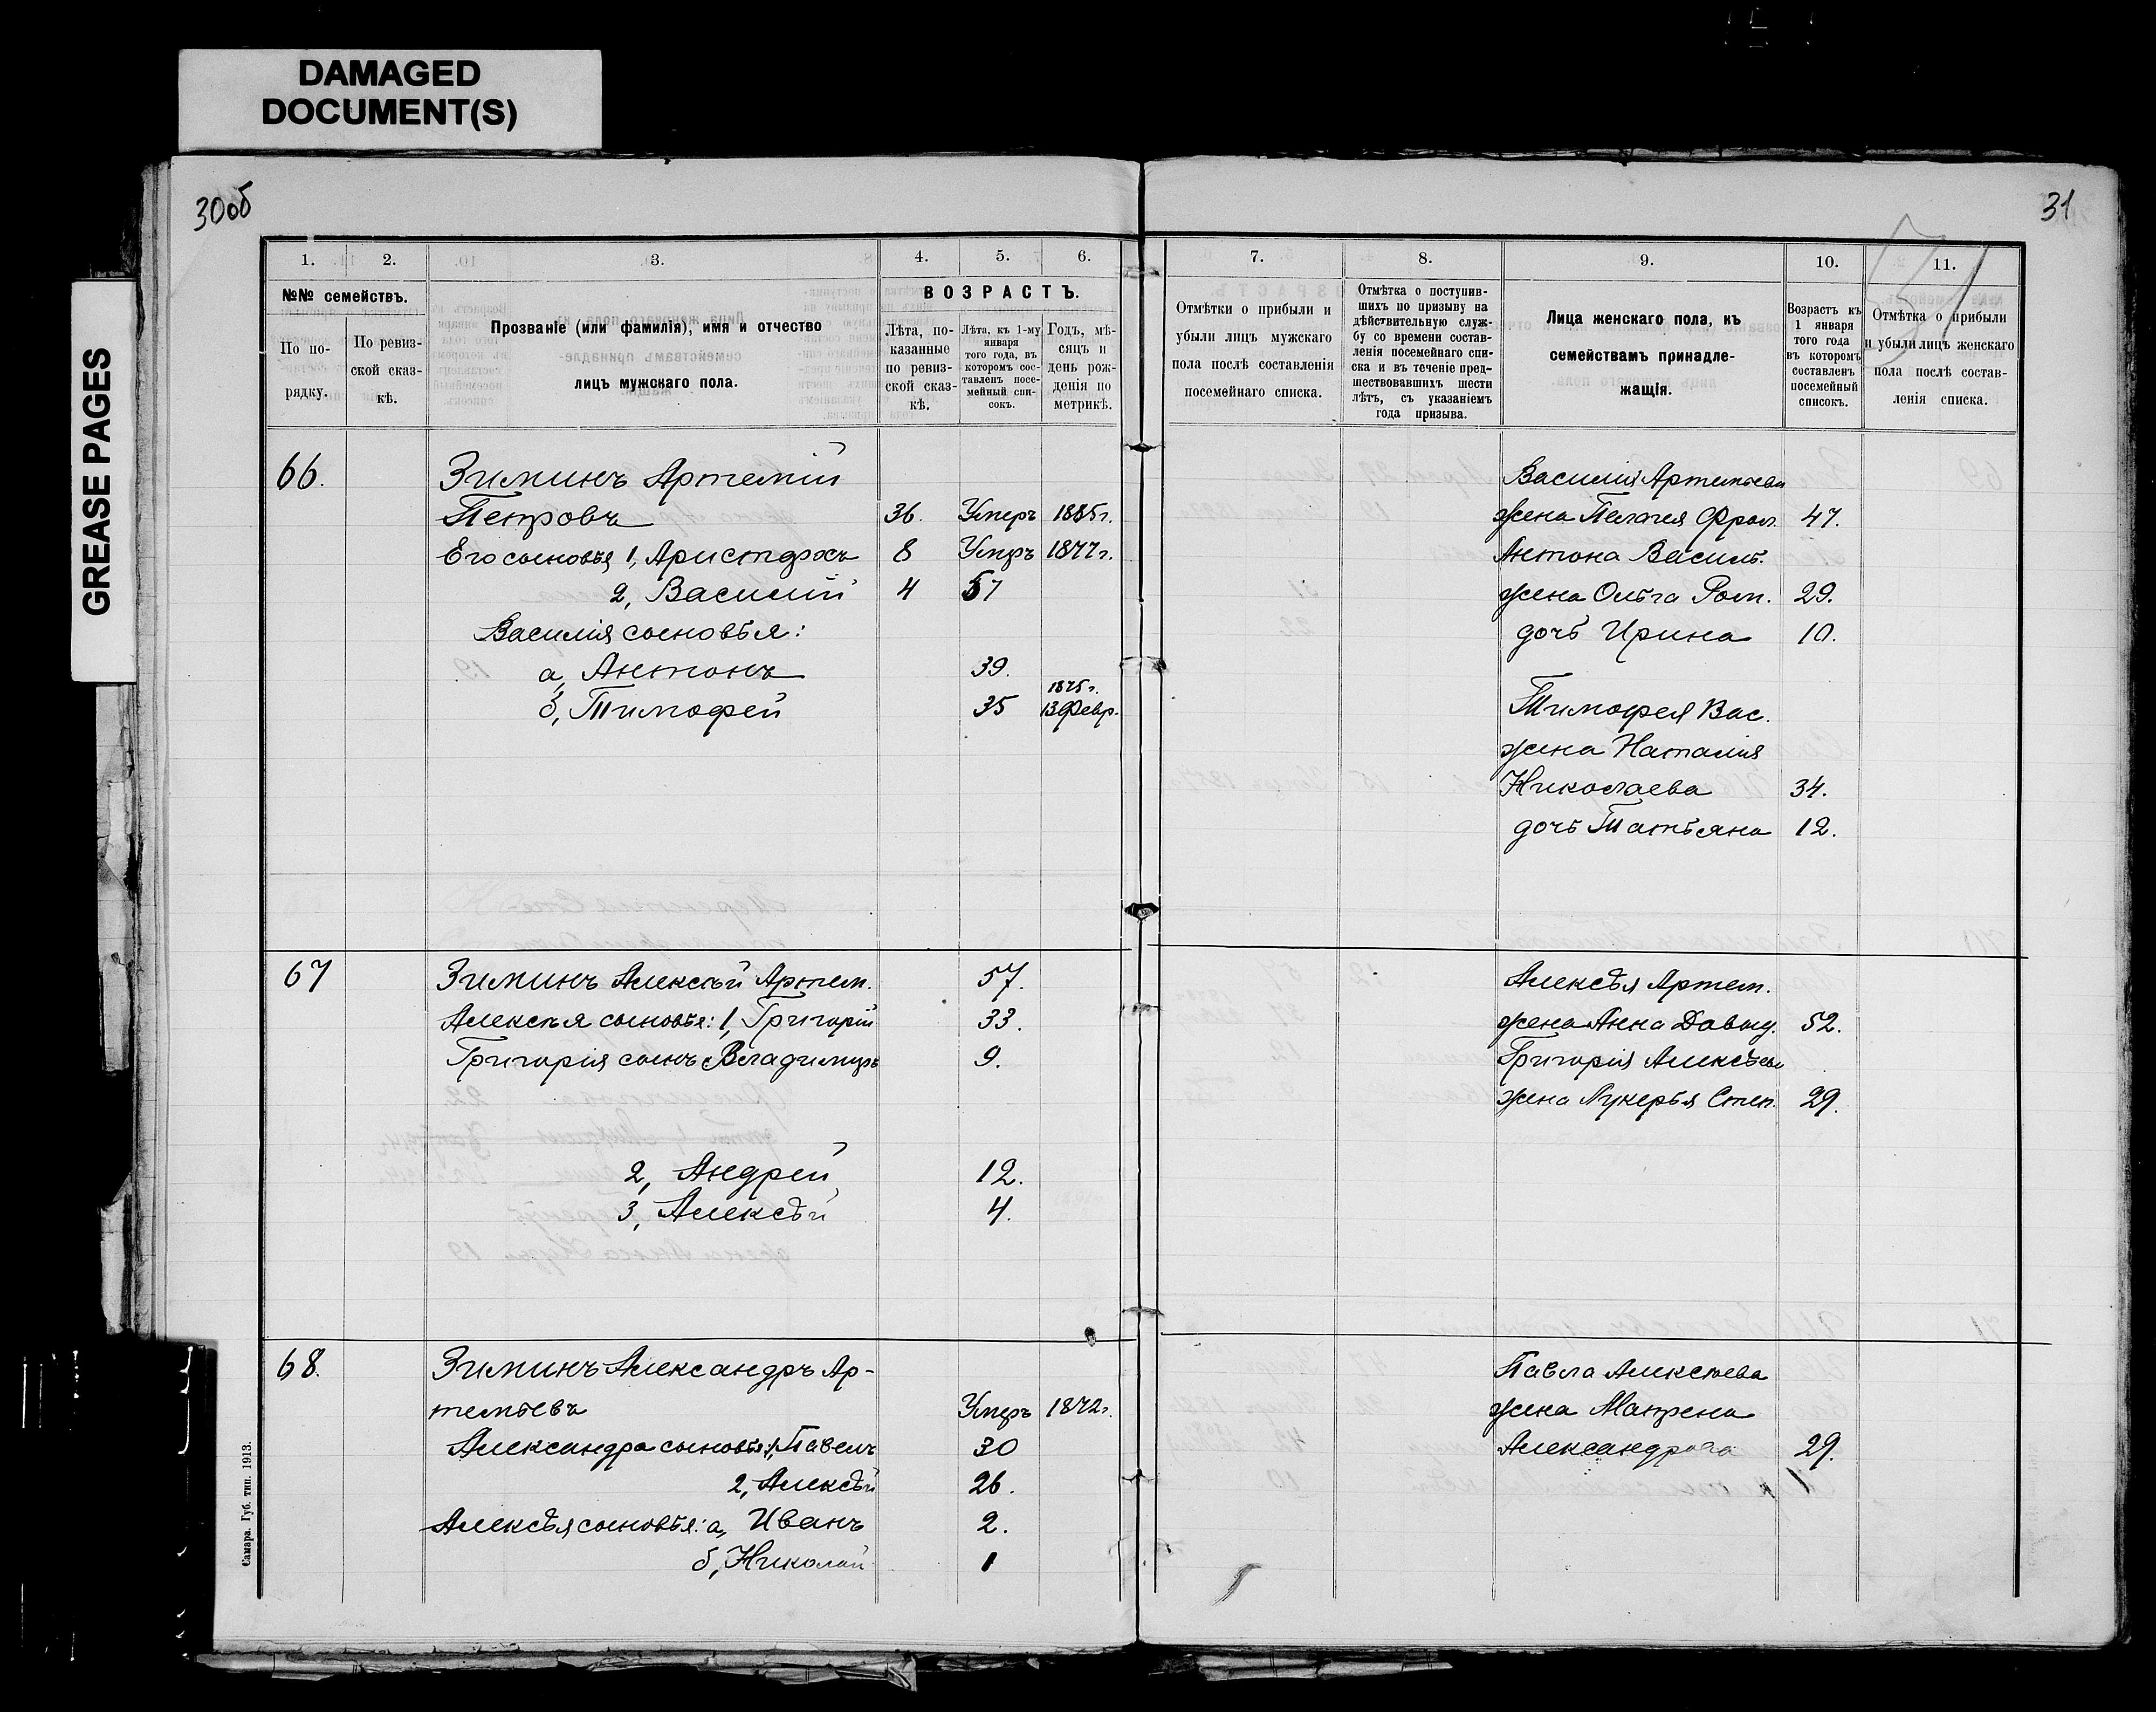 DAMAGED
DOCUMENT(S)
GREASE PAGES
30об
31
31
1.
2.
3.
4.
5.
6.
№№ семействъ.
По порядку.
По ревизской сказкѣ.
Прозваніе (или фамилія), имя и отчество
лицъ мужскаго пола.
ВОЗРАСТЪ.
Лѣта, показанные по ревизской сказкѣ.
Лѣта, къ 1-му января того года, въ которомъ составленъ посемейный списокъ.
Годъ, мѣсяцъ и день рожденія по метрикѣ.
7.
8.
9.
10.
11.
Отмѣтки о прибыли и
убыли лицъ мужскаго
пола послѣ составленія
посемейнаго списка.
Отмѣтка о поступив-
шихъ по призыву на
дѣйствительную служ-
бу со времени состав-
ленія посемейнаго спи-
ска и въ теченіе пред-
шествовавшихъ шести
лѣтъ, съ указаніемъ
года призыва.
Лица женскаго пола, къ
семействамъ принадле-
жащія.
Возрастъ къ
1 января
того года
въ которомъ
составленъ
посемейный
списокъ.
Отмѣтка о прибыли
и убыли лицъ женскаго
пола послѣ состав-
ленія списка.
66. Зиминъ Артемій
Петровъ 36. Умеръ 1885г.
Его сыновья 1, Аристархъ 8 Умеръ 1877г.
2, Василій 4 57
Василія сыновья:
а, Антонъ 39.
1875г.
б, Тимофей 35 13 Февр.
Василія Артемьева
жена Пелагея Фрол. 47.
Антона Василь.
жена Ольга Ром. 29.
дочь Ирина 10.
Тимофея Вас.
жена Наталія
Николаева 34.
дочь Татьяна 12.
67 Зиминъ Алексѣй Артем. 57.
Алексѣя сыновья: 1, Григорій 33.
Григорія сынъ Владиміръ 9.
2, Андрей 12.
3, Алексѣй 4.
Алексѣя Артем.
жена Анна Давыд. 52.
Григорія Алексѣева
жена Лукерья Степ. 29.
68. Зиминъ Александръ Ар-
темьевъ Умеръ 1872г.
Александра сыновья: 1, Павелъ 30
2, Алексѣй 26.
Алексѣя сыновья: а, Иванъ 2.
б, Николай 1
Павла Алексѣева
жена Матрена
Александрова 29.
Самара. Губ. тип. 1913.